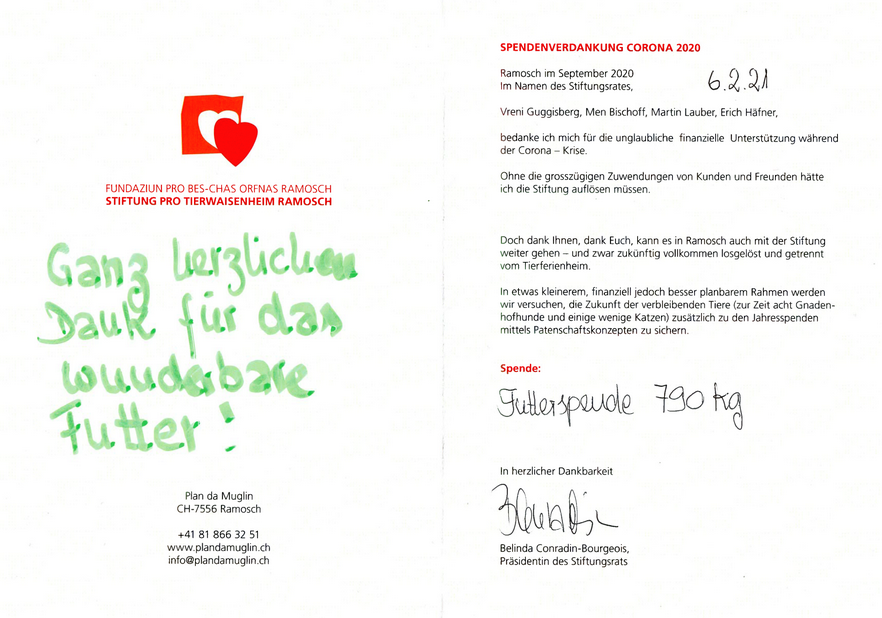 FUNDAZIUN PRO BES-CHAS ORFNAS RAMOSCH
STIFTUNG PRO TIERWAISENHEIM RAMOSCH
Ganz herzlichen
Dank für das
wunderbare
Futter!
Plan da Muglin
CH-7556 Ramosch
+41 81 866 32 51
www.plandamuglin.ch
info@plandamuglin.ch
SPENDENVERDANKUNG CORONA 2020
Ramosch im September 2020
6.2.21
Im Namen des Stiftungsrates,
Vreni Guggisberg, Men Bischoff, Martin Lauber, Erich Häfner,
bedanke ich mich für die unglaubliche finanzielle Unterstützung während
der Corona – Krise.
Ohne die grosszügigen Zuwendungen von Kunden und Freunden hätte
ich die Stiftung auflösen müssen.
Doch dank Ihnen, dank Euch, kann es in Ramosch auch mit der Stiftung
weiter gehen – und zwar zukünftig vollkommen losgelöst und getrennt
vom Tierferienheim.
In etwas kleinerem, finanziell jedoch besser planbarem Rahmen werden
wir versuchen, die Zukunft der verbleibenden Tiere (zur Zeit acht Gnaden-
hofhunde und einige wenige Katzen) zusätzlich zu den Jahresspenden
mittels Patenschaftskonzepten zu sichern.
Spende:
Futterspende 790 kg
In herzlicher Dankbarkeit
Belinda Conradin-Bourgeois,
Präsidentin des Stiftungsrats